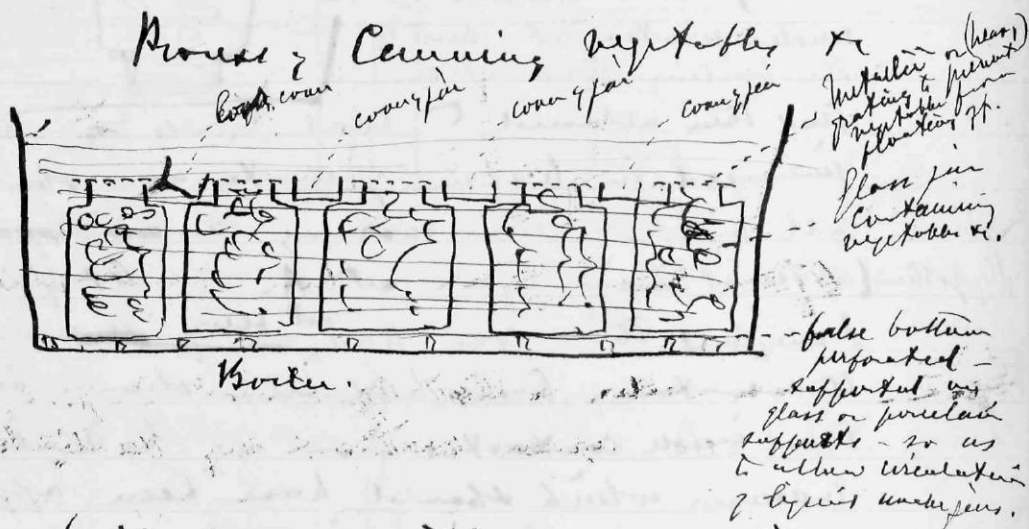 Process of Canning vegetables &c
cover cover of jar cover of jar cover of jar
Metallic or (heavy)
grating to prevent
vegetables from
floating off.
Glass jar
containing
vegetables &c.
false bottom
perforated -
supported by
glass or porcelain
supports - so as
to allow circulation
of liquid under jars.
Boiler.